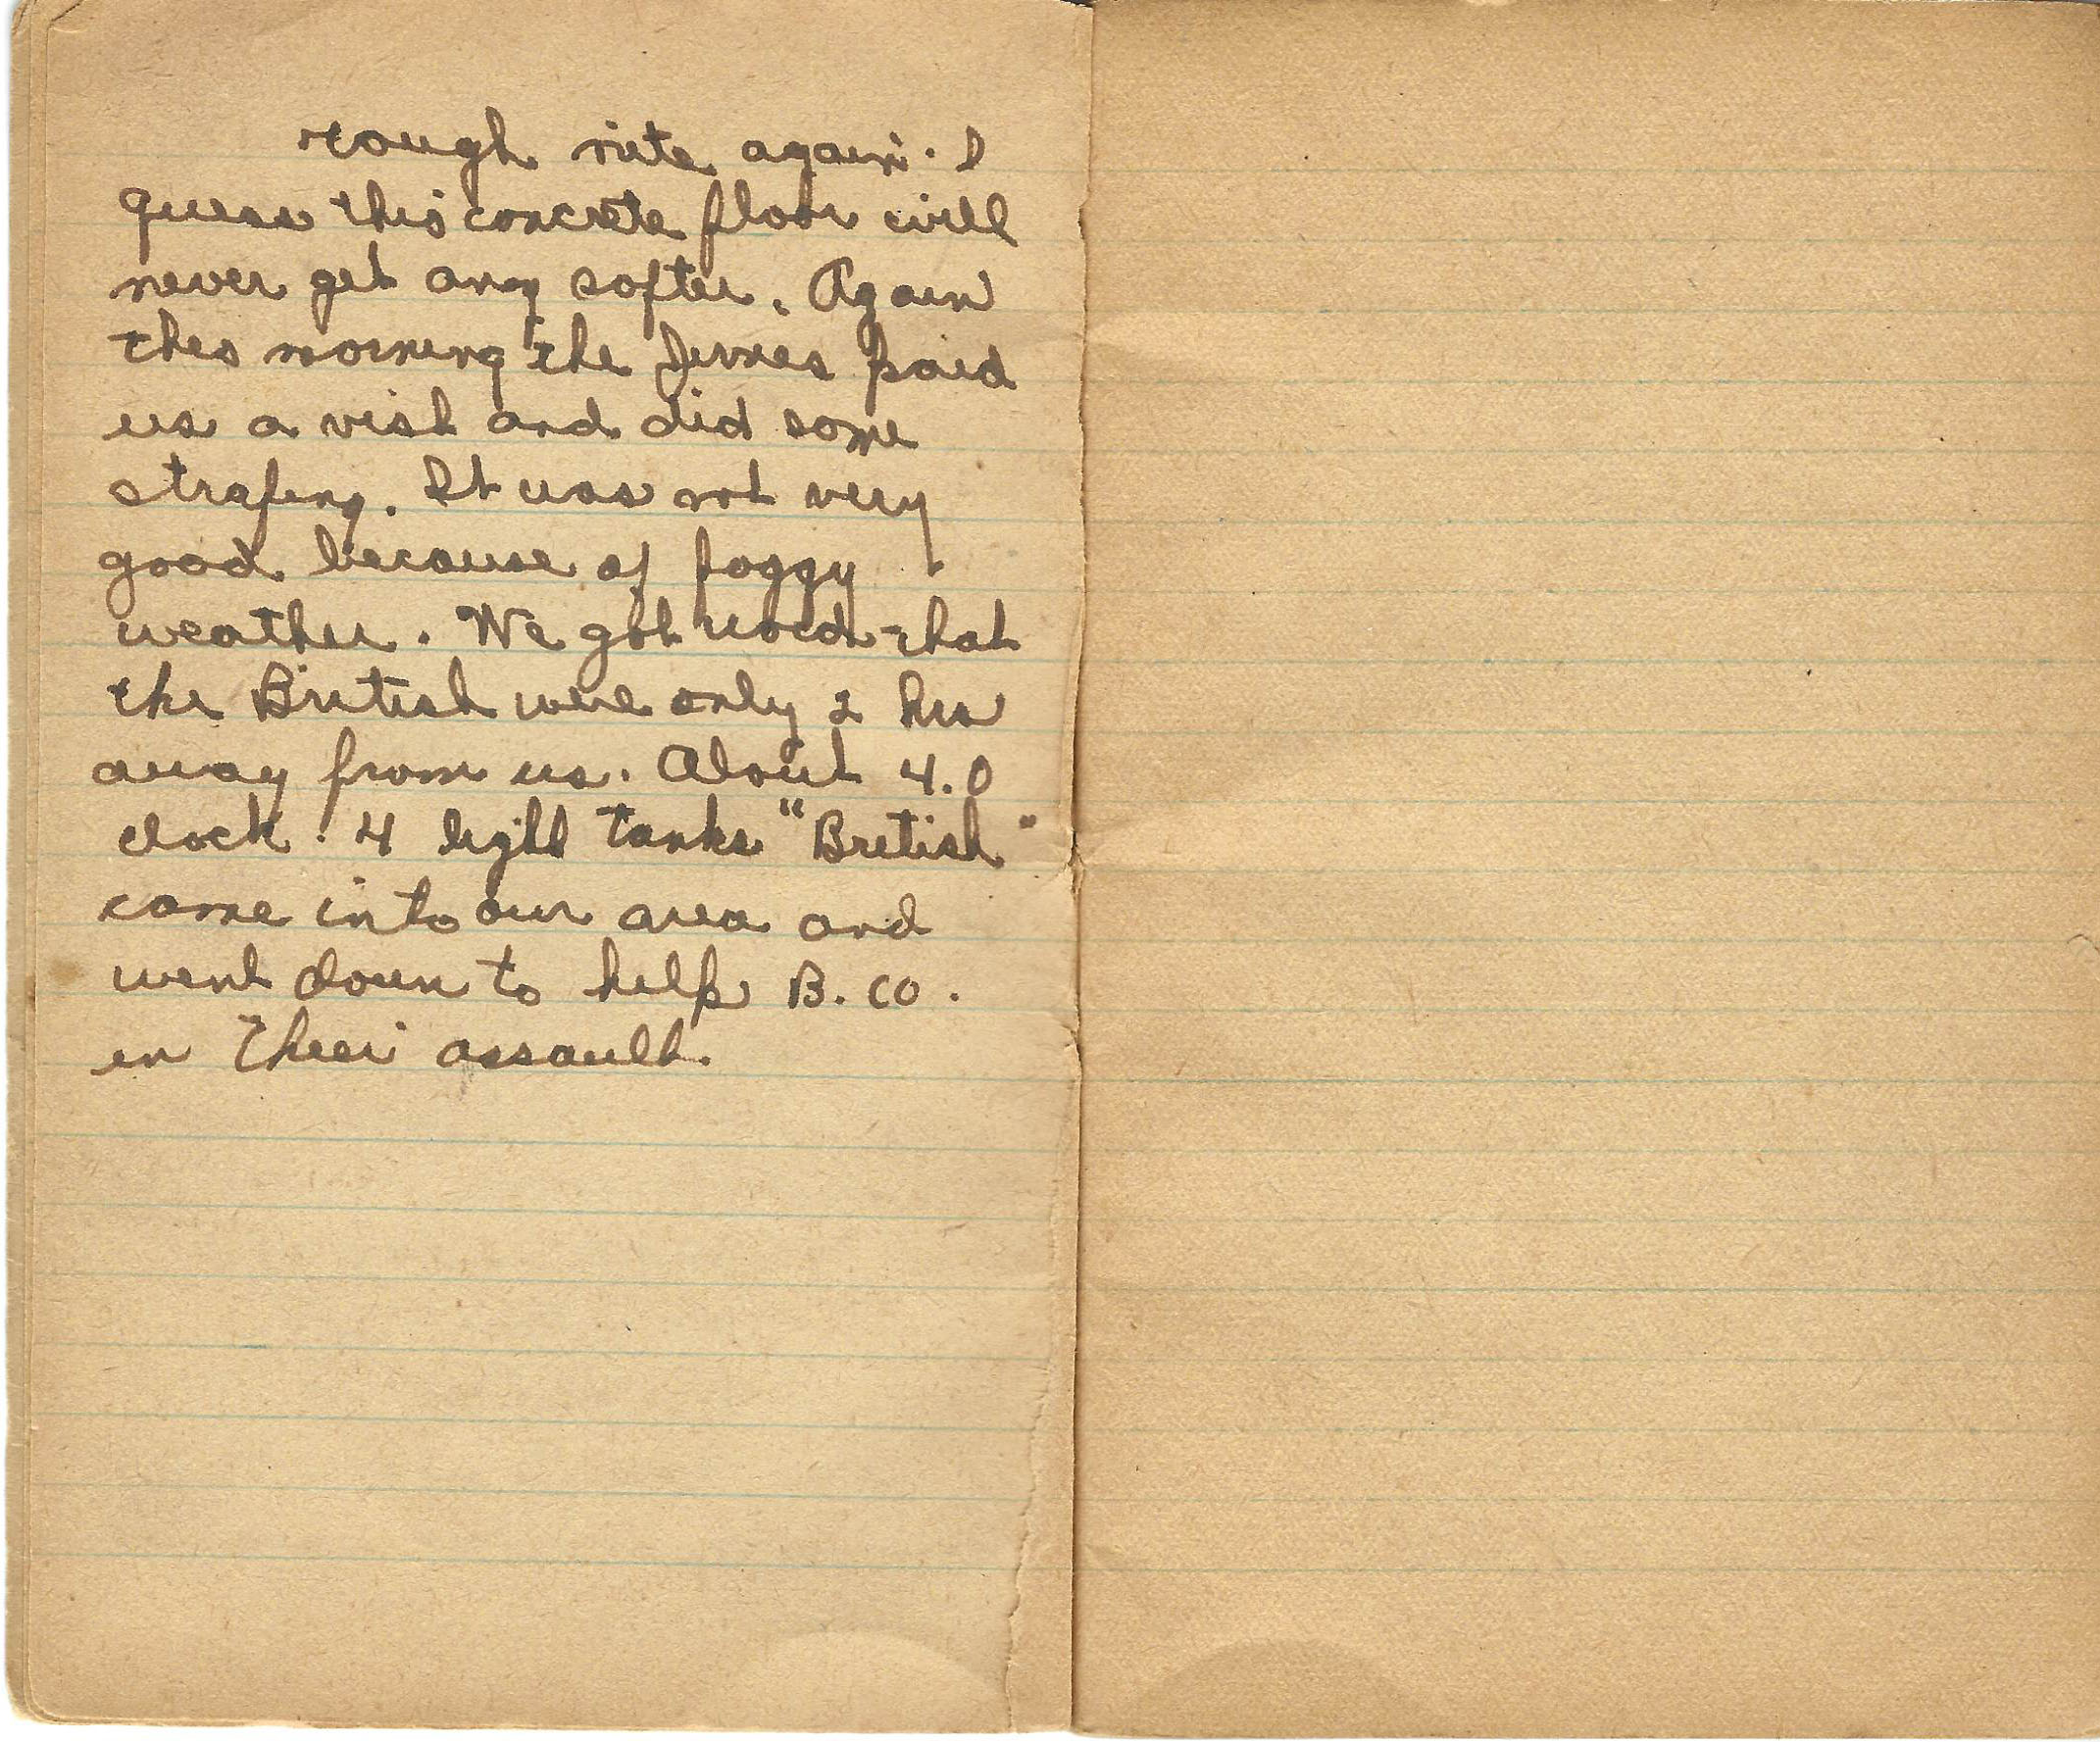 rough nite again. I
guess this concrete floor will
never get any softer. Again
this morning the Jerries paid
us a visit and did some
strafing. It was not very
good because of foggy
weather. We got word that
the British were only 2 hrs
away from us. About 4.0
clock. 4 light tanks "British"
came into our area and
went down to help B. Co.
in their assault.